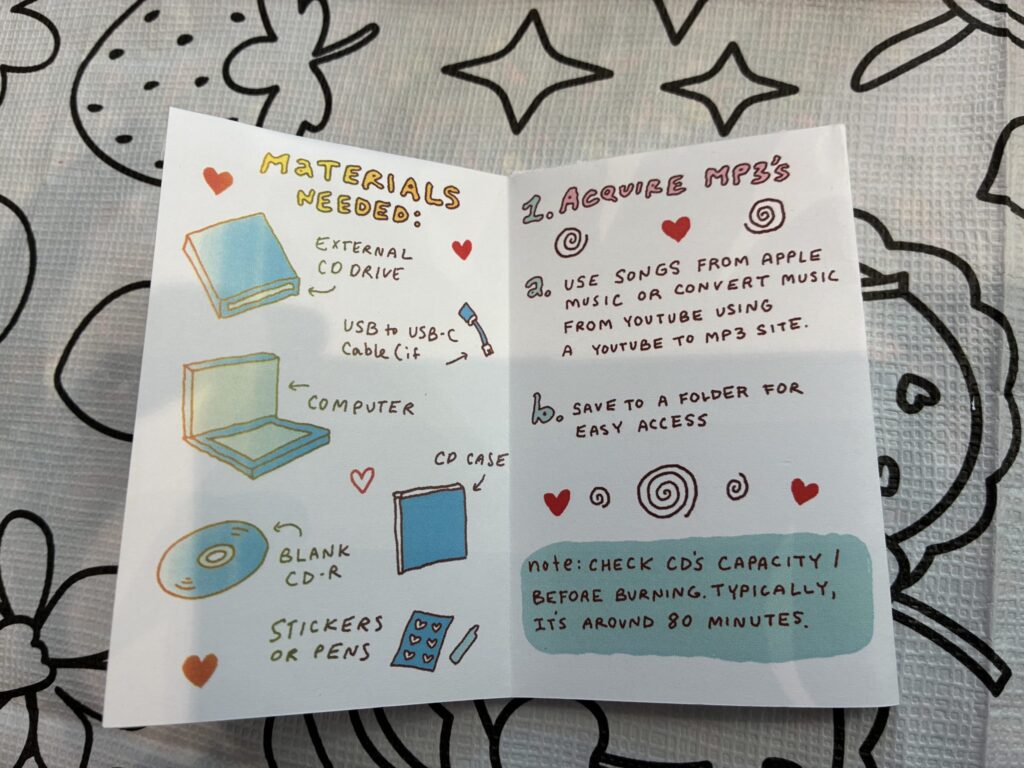 MATERIALS
NEEDED:
EXTERNAL
CD DRIVE
USB to USB-C
Cable (if
COMPUTER
CD CASE
BLANK
CD-R
STICKERS
OR PENS
1. ACQUIRE MP3's
a. USE SONGS FROM APPLE
MUSIC OR CONVERT MUSIC
FROM YOUTUBE USING
A YOUTUBE TO MP3 SITE.
b. SAVE TO A FOLDER FOR
EASY ACCESS
note: CHECK CD'S CAPACITY /
BEFORE BURNING. TYPICALLY,
IT'S AROUND 80 MINUTES.